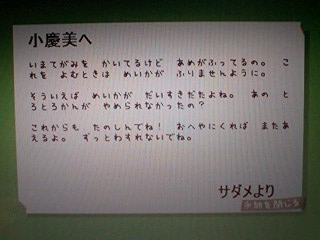 小慶美へ
いまてがみを かいてるけど あめがふってるの。 こ
れを よむときは めいかが ふりませんように。
そういえば めいかが だいすきだたよね。 あの と
ろとろかんが やめられなかったの？
これからも たのしんでね！ おへやにくれば またあ
えるよ。 ずっとわすれないでね。
サダメより
手紙を閉じる